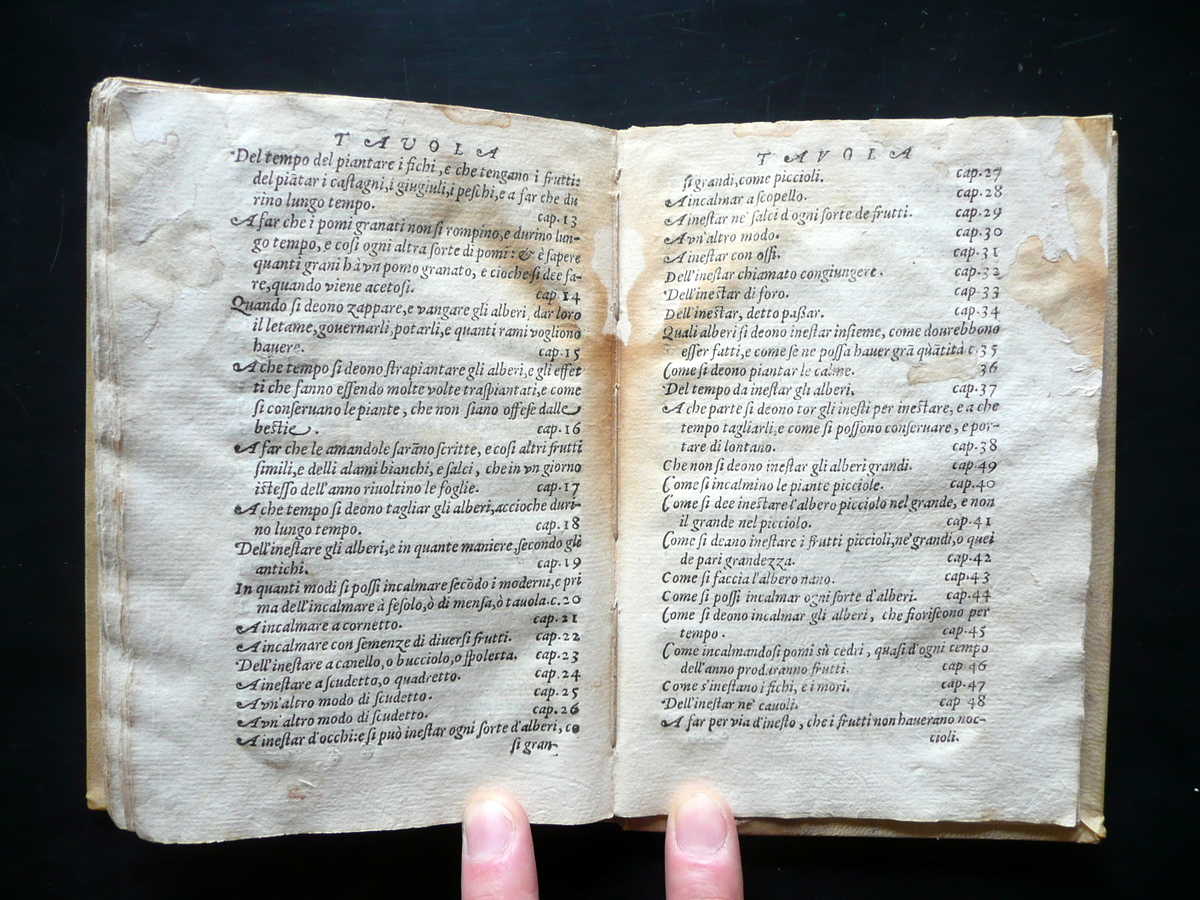 TAVOLA
Del tempo del piantare i fichi, e che tengano i frutti:
del piãtar i castagni, i giugiuli, i peschi, e a far che du
rino lungo tempo. cap.13
A far che i pomi granati non si rompino, e durino lun-
go tempo, e cosi ogni altra sorte di pomi: & è sapere
quanti grani hà vn pomo granato, e cioche si dee fa-
re, quando viene acetosi. cap.14
Quando si deono zappare, e vangare gli alberi, dar loro
il letame, gouernarli, potarli, e quanti rami vogliono
hauere. cap.15
A che tempo si deono strapiantare gli alberi, e gli effet
ti che fanno essendo molte volte traspiantati, e come
si conseruano le piante, che non siano offese dalle
bestie. cap.16
A far che le amandole sarãno scritte, e cosi altri frutti
simili, e delli alami bianchi, e salci, che in vn giorno
istesso dell'anno riuoltino le foglie. cap.17
A che tempo si deono tagliar gli alberi, accioche duri-
no lungo tempo. cap.18
Dell'inestare gli alberi, e in quante maniere, secondo gli
antichi. cap.19
In quanti modi si possi incalmare secõdo i moderni, e pri
ma dell'incalmare à fesolo, ò di mensa, ò tauola. c.20
A incalmare a cornetto. cap.21
A incalmare con semenze di diuersi frutti. cap.22
Dell'inestare a canello, o bucciolo, o spoletta. cap.23
A inestare a scudetto, o quadretto. cap.24
A vn'altro modo di scudetto. cap.25
A vn'altro modo di scudetto. cap.26
A inestar d'occhi: e si può inestar ogni sorte d'alberi, co
si gran-
TAVOLA
si grandi, come piccioli. cap.27
A incalmar a scopello. cap.28
A inestar ne' salci d'ogni sorte de frutti. cap.29
A vn'altro modo. cap.30
A inestar con ossi. cap.31
Dell'inestar chiamato congiungere. cap.32
Dell'inestar di foro. cap.33
Dell'inestar, detto passar. cap.34
Quali alberi si deono inestar insieme, come dourebbono
esser fatti, e come se ne possa hauer grã quãtità c.35
Come si deono piantar le calme. 36
Del tempo da inestar gli alberi. cap.37
A che parte si deono tor gli inesti per inestare, e a che
tempo tagliarli, e come si possono conseruare, e por-
tare di lontano. cap.38
Che non si deono inestar gli alberi grandi. cap.49
Come si incalmino le piante picciole. cap.40
Come si dee inestare l'albero picciolo nel grande, e non
il grande nel picciolo. cap.41
Come si deano inestare i frutti piccioli, ne' grandi, o quei
de pari grandezza. cap.42
Come si faccia l'albero nano. cap.43
Come si possi incalmar ogni sorte d'alberi. cap.44
Come si deono incalmar gli alberi, che fioriscono per
tempo. cap.45
Come incalmandosi pomi sù cedri, quasi d'ogni tempo
dell'anno produranno frutti. cap 46
Come s'inestano i fichi, e i mori. cap.47
Dell'inestar ne' cauoli. cap 48
A far per via d'inesto, che i frutti non hauerano noc-
cioli.